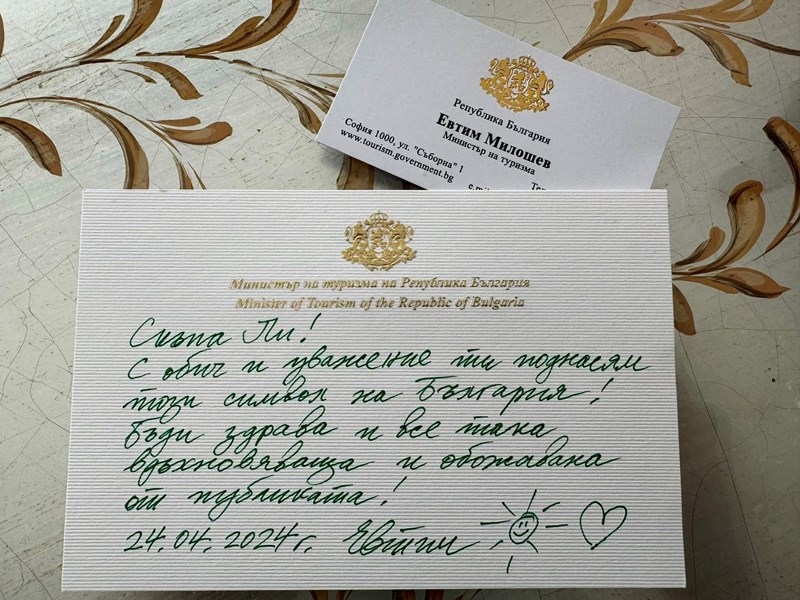 Република България
Евтим Милошев
Министър на туризма
София 1000, ул. "Съборна" 1
www.tourism.government.bg
Министър на туризма на Република България
Minister of Tourism of the Republic of Bulgaria
Скъпа Ли!
С обич и уважение ти поднасям
този символ на България!
Бъди здрава и все така
вдъхновяваща и обожавана
от публиката!
24.04.2024г. Евтим